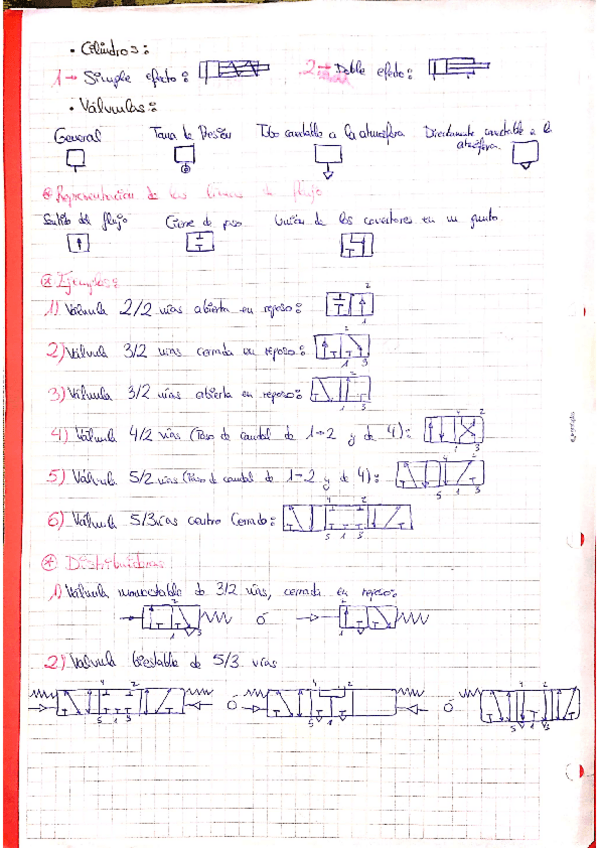 • Cilindros:
1→ Simple efecto: 2→ Doble efecto:
• Válvulas:
General Toma de Presión Tubo conectable a la atmósfera Directamente conectable a la atmósfera.
* Representación de las líneas de flujo
Sentido del flujo Cierre de paso Unión de los conectores en un punto
* Ejemplos:
1) Válvula 2/2 vías abierta en reposo:
2) Válvula 3/2 vías cerrada en reposo:
3) Válvula 3/2 vías abierta en reposo:
4) Válvula 4/2 vías (Paso de caudal de 1→2 y de 4):
5) Válvula 5/2 vías (Paso de caudal de 1-2 y de 4):
6) Válvula 5/3 vías centro cerrado:
* Distribuidoras:
1) Válvula monoestable de 3/2 vías, cerrada en reposo:
ó
2) Válvula biestable de 5/3 vías
ó ó